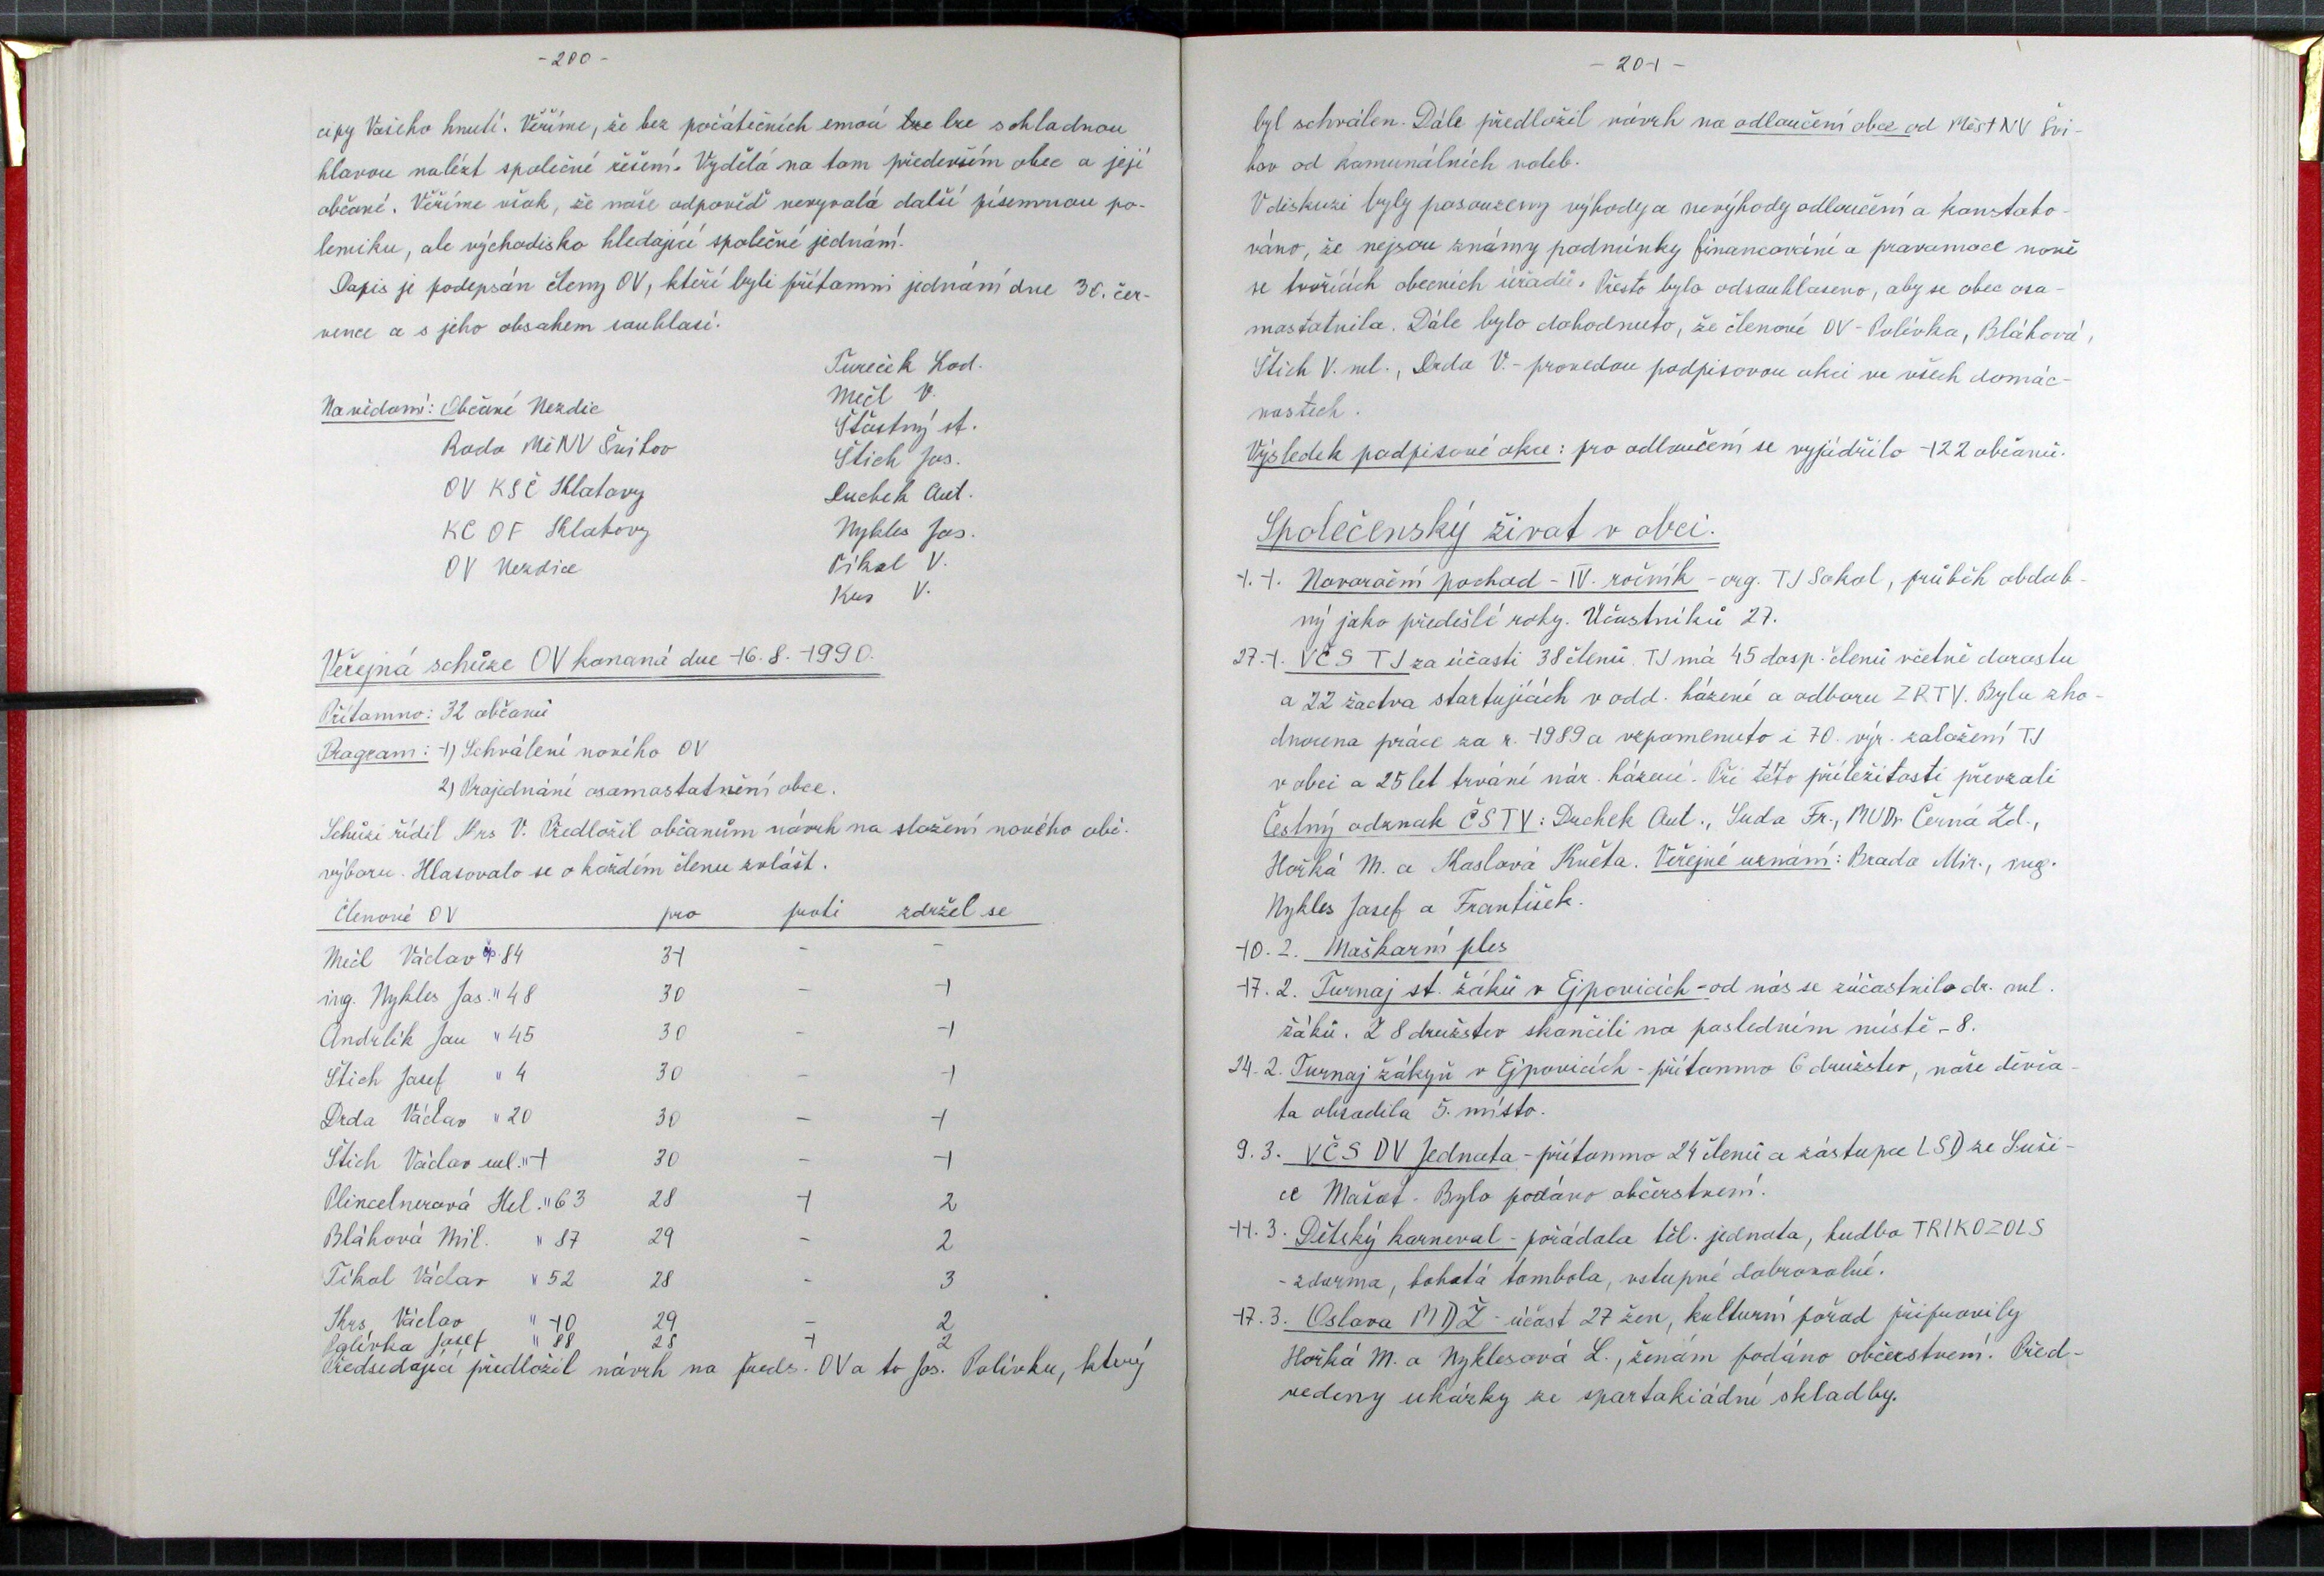 - 200 -
cipy Vašeho hnutí. Věříme, že bez počátečních emocí lze lze s chladnou
hlavou nalézt společné řešení. Vydělá na tom především obec a její
občané. Věříme však, že naše odpověď nevyvolá další písemnou po-
lemiku, ale východisko hledající společné jednání.
Dopis je podepsán členy OV, kteří byli přítomni jednání dne 30. čer-
vence a s jeho obsahem souhlasí.
Tureček Lad.
Mečl V.
Na vědomí: Občané Nezdic
Šťastný st.
Rada MěNV Švihov
Štich Jos.
OV KSČ Klatovy
Duchek Ant.
KC OF Klatovy
Nykles Jos.
OV Nezdice
Tikal V.
Krs V.
Veřejná schůze OV konaná dne 16. 8. 1990.
Přítomno: 32 občanů
Program: 1) Schválení nového OV
2) Projednání osamostatnění obce.
Schůzi řídil Krs V. Předložil občanům návrh na složení nového obč.
výboru. Hlasovalo se o každém členu zvlášt.
Členové OV pro proti zdržel se
Mečl Václav čp. 84 31 - -
ing. Nykles Jos. " 48 30 - 1
Andrlík Jan " 45 30 - 1
Štich Josef " 4 30 - 1
Drda Václav " 20 30 - 1
Štich Václav ml. " 1 30 - 1
Plincelnerová Hel. " 63 28 1 2
Bláhová Mil. " 87 29 - 2
Tikal Václav " 52 28 - 3
Krs Václav " 10 29 - 2
Polívka Josef " 88 28 1 2
Předsedající předložil návrh na předs. OV a to Jos. Polívku, který
- 201 -
byl schválen. Dále předložil návrh na odloučení obce od MěstNV Švi-
hov od komunálních voleb.
V diskuzi byly posouzeny výhody a nevýhody odloučení a konstato-
váno, že nejsou známy podmínky financování a pravomoce nově
se tvořících obecních úřadů. Přesto bylo odsouhlaseno, aby se obec osa-
mostatnila. Dále bylo dohodnuto, že členové OV - Polívka, Bláhová,
Štich V. ml., Drda V. - provedou podpisovou akci ve všech domác-
nostech.
Výsledek podpisové akce: pro odloučení se vyjádřilo 122 občanů.
Společenský život v obci.
1. 1. Novoroční pochod - IV. ročník - org. TJ Sokol, průběh obdob-
ný jako předešlé roky. Účastníků 27.
27. 1. VČS TJ za účasti 38 členů. TJ má 45 dosp. členů včetně dorostu
a 22 žactva startujících v odd. házené a odboru ZRTV. Byla zho-
dnocena práce za r. 1989 a vzpomenuto i 70. výr. založení TJ
v obci a 25 let trvání nár. házené. Při této příležitosti převzali
Čestný odznak ČSTV: Duchek Ant., Suda Fr., MUDr Černá Zd.,
Hořká M. a Kaslová Květa. Veřejné uznání: Brada Mir., ing.
Nykles Josef a František.
10. 2. Maškarní ples
17. 2. Turnaj st. žáků v Ejpovicích - od nás se zúčastnilo dr. ml.
žáků. Z 8 družstev skončili na posledním místě - 8.
24. 2. Turnaj žákyň v Ejpovicích - přítomno 6 družstev, naše děvča-
ta obsadila 5. místo.
9. 3. VČS DV Jednota - přítomno 24 členů a zástupce LSD ze Suši-
ce Mašat. Bylo podáno občerstvení.
11. 3. Dětský karneval - pořádala těl. jednota, hudba TRIKOZOLS
- zdarma, bohatá tombola, vstupné dobrovolné.
17. 3. Oslava MDŽ - účast 27 žen, kulturní pořad připravily
Hořká M. a Nyklesová L., ženám podáno občerstvení. Před-
vedeny ukázky ze spartakiádní skladby.